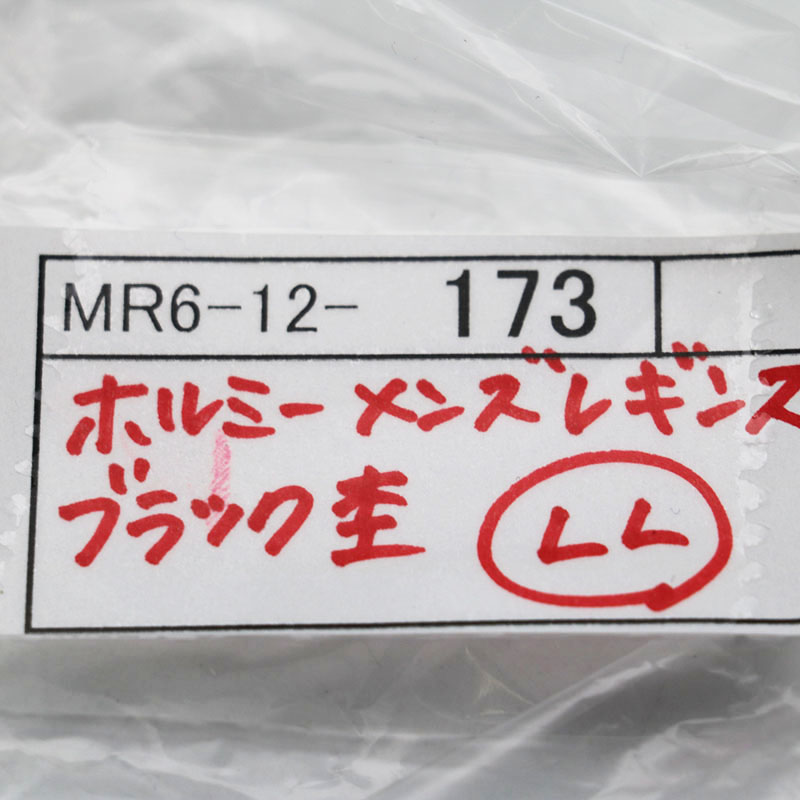 MR6-12- 173
ホルミー メンズレギンス
ブラック杢 LL